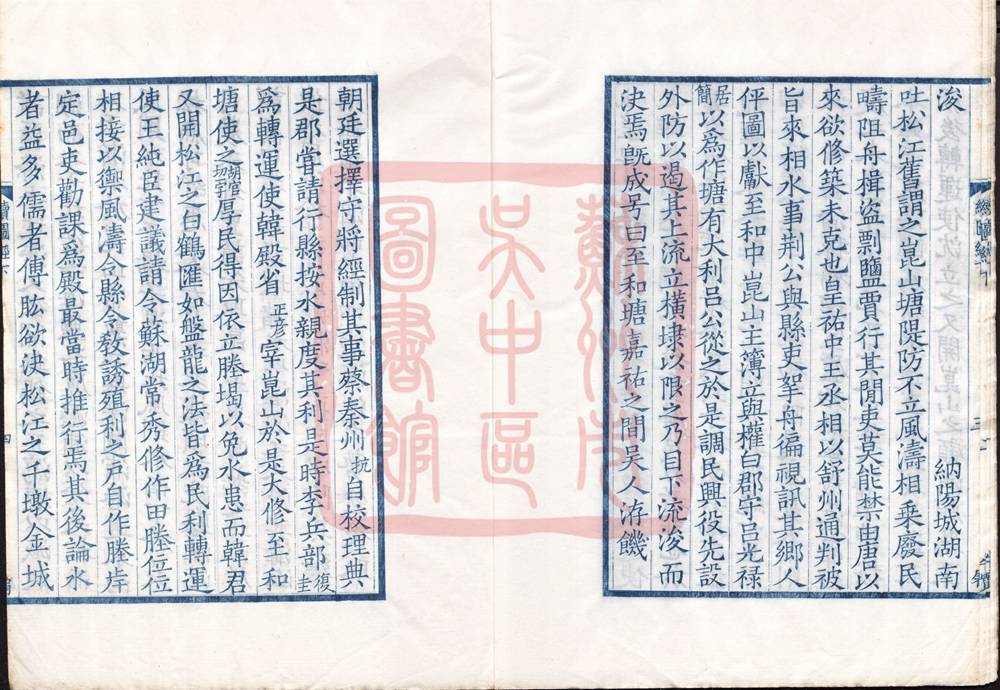 浚 納陽城湖南
吐松江舊謂之崑山塘隄防不立風濤相乘廢民
疇阻舟楫盜剽鹽賈行其閒吏莫能禁由唐以
來欲修築未克也皇祐中王丞相以舒州通判被
旨來相水事荆公與縣吏挐舟徧視訊其鄉人
伻圖以獻至和中崑山主簿立與權白郡守呂光祿
居簡以爲作塘有大利呂公從之於是調民興役先設
外防以遏其上流立橫埭以限之乃自下流浚而
決焉旣成号曰至和塘嘉祐之閒吳人洊饑
朝廷選擇守將經制其事蔡秦州抗自校理典
是郡嘗請行縣按水親度其利是時李兵部復圭
爲轉運使韓殿省正彦宰崑山於是大修至和
塘使之厚民得因依立塍堨以免水患而韓君
又開松江之白鶴匯如盤龍之法皆爲民利轉運
使王純臣建議請令蘇湖常秀修作田塍位位
相接以禦風濤令縣令敎誘殖利之戶自作塍垾
定邑吏勸課爲殿最當時推行焉其後論水
者益多儒者傅肱欲決松江之千墩金城
蘇州市
吳中區
圖書館
續圖經下
四